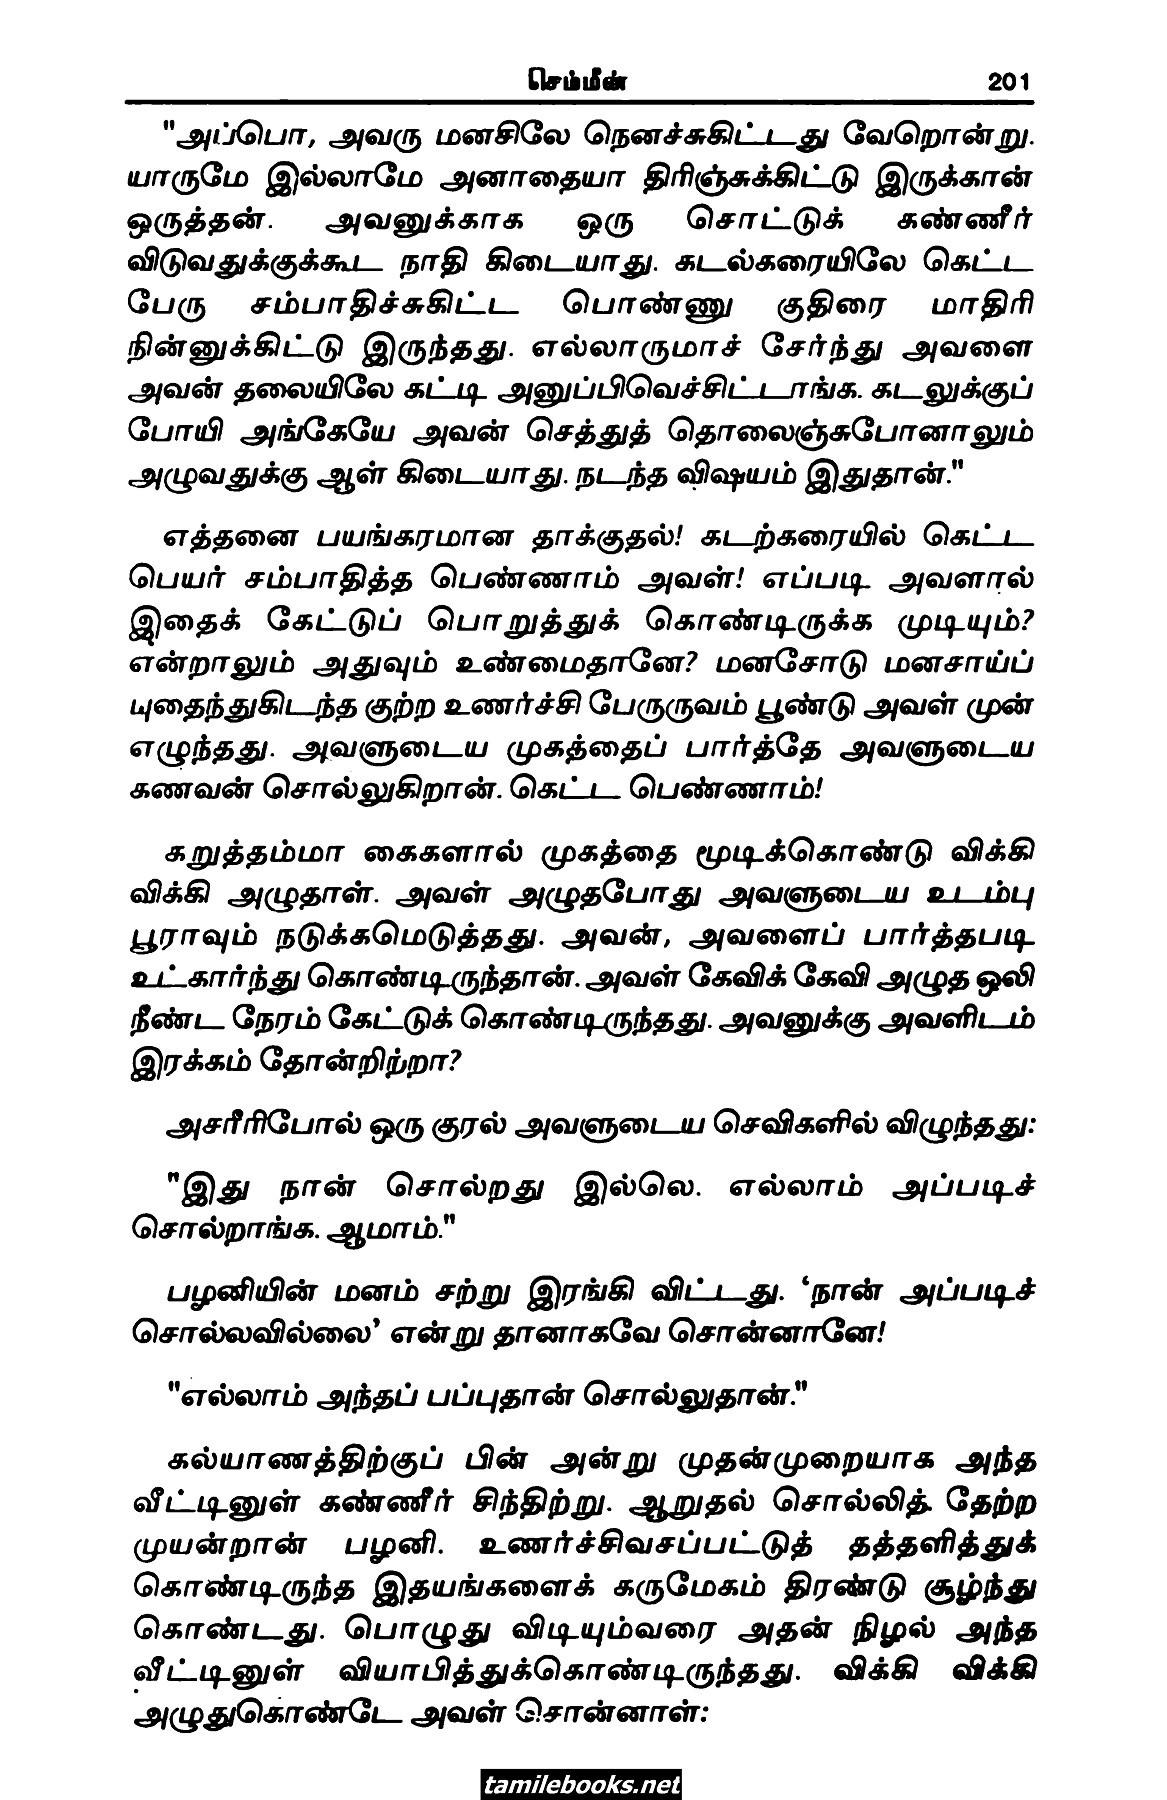 செம்மீன் 201
"அப்பொ, அவரு மனசிலே நெனச்சுகிட்டது வேறொன்று.
யாருமே இல்லாமே அனாதையா திரிஞ்சுக்கிட்டு இருக்கான்
ஒருத்தன். அவனுக்காக ஒரு சொட்டுக் கண்ணீர்
விடுவதுக்குக்கூட நாதி கிடையாது. கடல்கரையிலே கெட்ட
பேரு சம்பாதிச்சுகிட்ட பொண்ணு குதிரை மாதிரி
நின்னுக்கிட்டு இருந்தது. எல்லாருமாச் சேர்ந்து அவளை
அவன் தலையிலே கட்டி அனுப்பிவெச்சிட்டாங்க. கடலுக்குப்
போயி அங்கேயே அவன் செத்துத் தொலைஞ்சுபோனாலும்
அழுவதுக்கு ஆள் கிடையாது. நடந்த விஷயம் இதுதான்."
எத்தனை பயங்கரமான தாக்குதல்! கடற்கரையில் கெட்ட
பெயர் சம்பாதித்த பெண்ணாம் அவள்! எப்படி அவளால்
இதைக் கேட்டுப் பொறுத்துக் கொண்டிருக்க முடியும்?
என்றாலும் அதுவும் உண்மைதானே? மனசோடு மனசாய்ப்
புதைந்துகிடந்த குற்ற உணர்ச்சி பேருருவம் பூண்டு அவள் முன்
எழுந்தது. அவளுடைய முகத்தைப் பார்த்தே அவளுடைய
கணவன் சொல்லுகிறான். கெட்ட பெண்ணாம்!
கறுத்தம்மா கைகளால் முகத்தை மூடிக்கொண்டு விக்கி
விக்கி அழுதாள். அவள் அழுதபோது அவளுடைய உடம்பு
பூராவும் நடுக்கமெடுத்தது. அவன், அவளைப் பார்த்தபடி
உட்கார்ந்து கொண்டிருந்தான். அவள் கேவிக் கேவி அழுத ஒலி
நீண்ட நேரம் கேட்டுக் கொண்டிருந்தது. அவனுக்கு அவளிடம்
இரக்கம் தோன்றிற்றா?
அசரீரிபோல் ஒரு குரல் அவளுடைய செவிகளில் விழுந்தது:
"இது நான் சொல்றது இல்லெ. எல்லாம் அப்படிச்
சொல்றாங்க. ஆமாம்."
பழனியின் மனம் சற்று இரங்கி விட்டது. ‘நான் அப்படிச்
சொல்லவில்லை’ என்று தானாகவே சொன்னானே!
"எல்லாம் அந்தப் பப்புதான் சொல்லுதான்."
கல்யாணத்திற்குப் பின் அன்று முதன்முறையாக அந்த
வீட்டினுள் கண்ணீர் சிந்திற்று. ஆறுதல் சொல்லித் தேற்ற
முயன்றான் பழனி. உணர்ச்சிவசப்பட்டுத் தத்தளித்துக்
கொண்டிருந்த இதயங்களைக் கருமேகம் திரண்டு சூழ்ந்து
கொண்டது. பொழுது விடியும்வரை அதன் நிழல் அந்த
வீட்டினுள் வியாபித்துக்கொண்டிருந்தது. விக்கி விக்கி
அழுதுகொண்டே அவள் சொன்னாள்:
tamilebooks.net